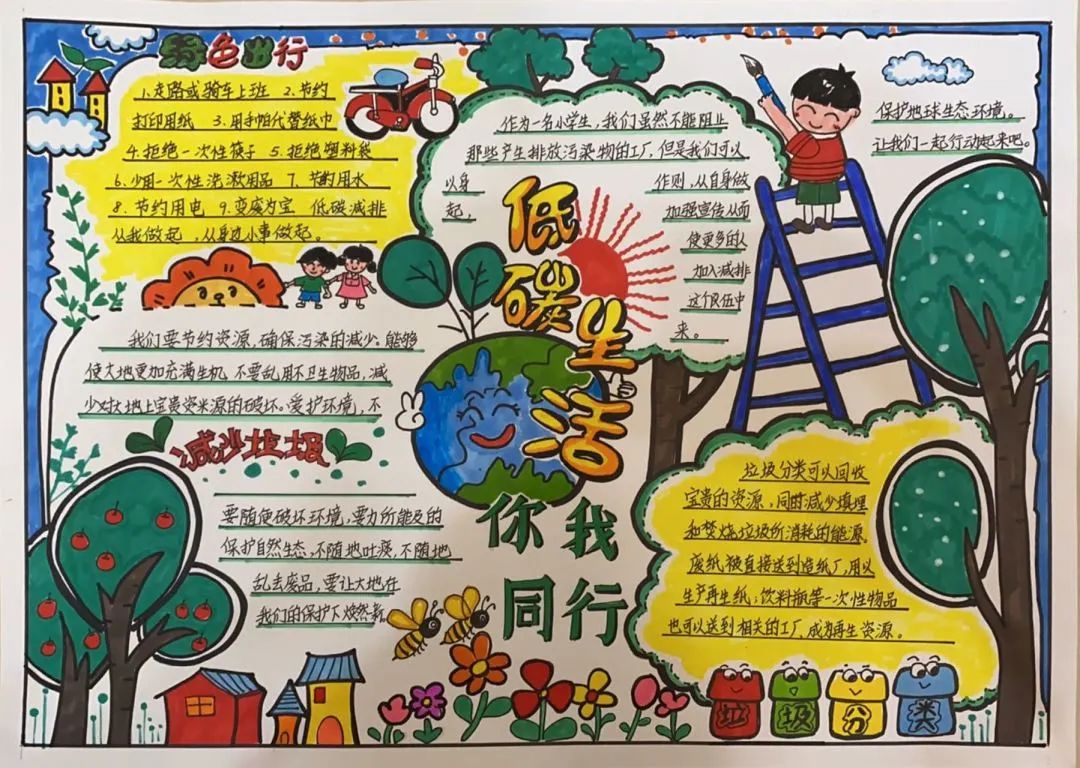 绿色出行
1.走路或骑车上班 2.节约
打印用纸 3.用手帕代替纸巾
4.拒绝一次性筷子 5.拒绝塑料袋
6.少用一次性洗漱用品 7.节约用水
8.节约用电 9.变废为宝 低碳减排
从我做起,从身边小事做起。
作为一名小学生,我们虽然不能阻止
那些产生排放污染物的工厂,但是我们可以
以身 作则,从自身做
起, 加强宣传从而
使更多的人
加入减排
这个队伍中
来。
保护地球生态环境。
让我们一起行动起来吧。
低碳生活
你我
同行
我们要节约资源,确保污染的减少。能够
使大地更加充满生机,不要乱用不卫生物品,减
少对大地上宝贵资米源的破坏。爱护环境,不
减少垃圾
要随便破坏环境,要力所能及的
保护自然生态,不随地吐痰,不随地
乱丢废品,要让大地在
我们的保护下焕然新。
垃圾分类可以回收
宝贵的资源,同时减少填埋
和焚烧垃圾所消耗的能源,
废纸被直接送到造纸厂,用以
生产再生纸;饮料瓶等一次性物品
也可以送到相关的工厂,成为再生资源。
垃圾分类